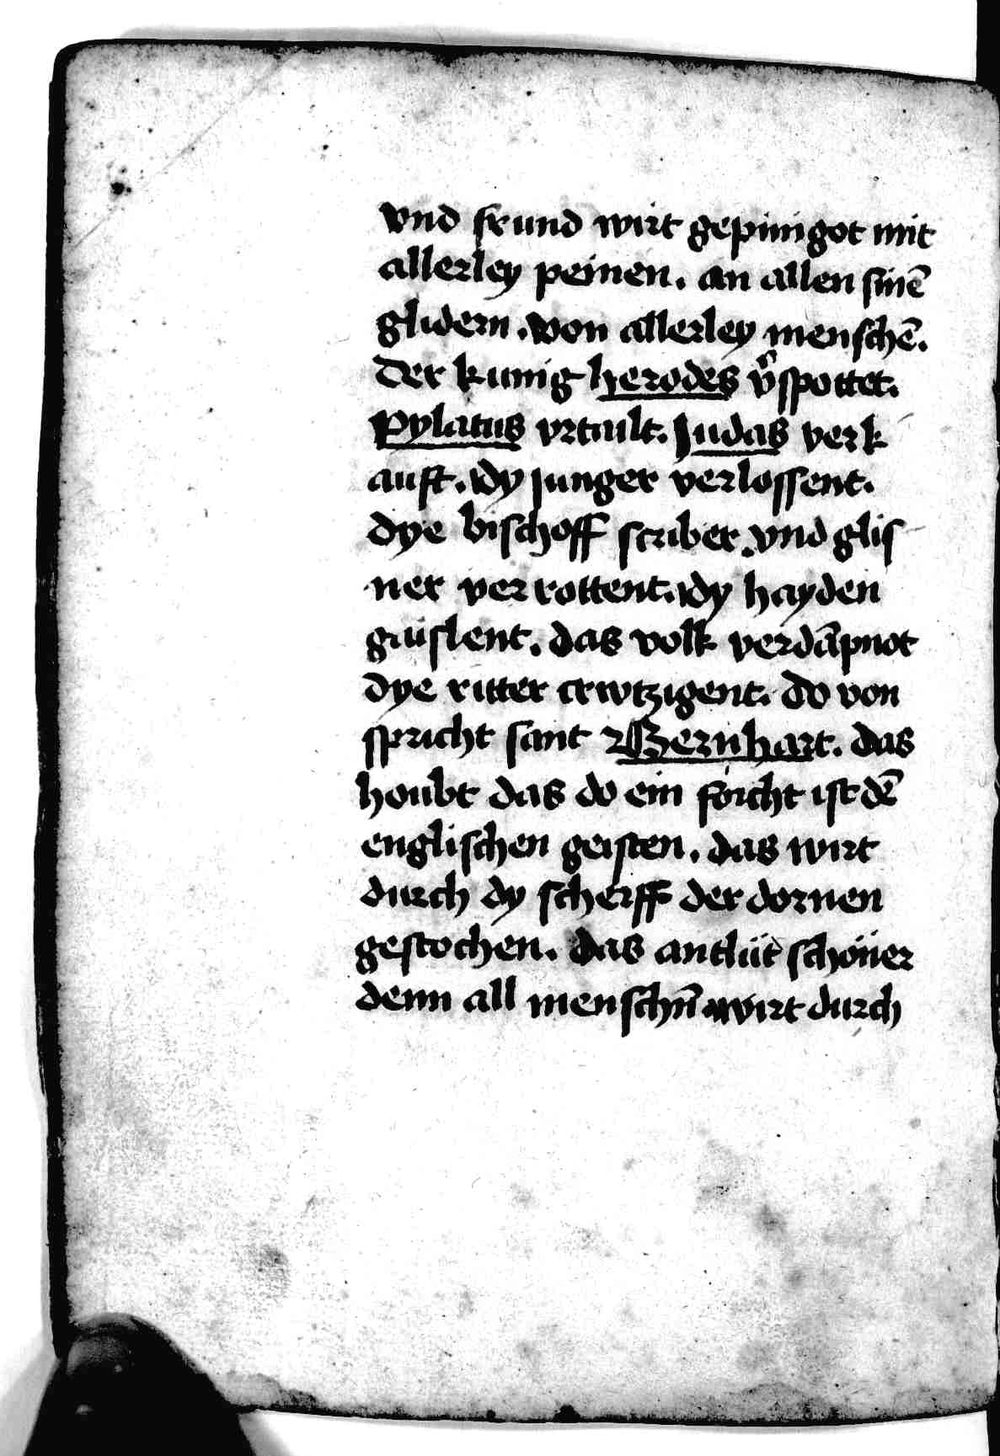 vnd frund wirt gepinigot mit
allerley peinen. an allen sinē
glidern. von allerley menschē.
Der kunig herodes v̄spottet.
Pylatus vrtailt. Judas verk
auft. dy junger verlossent.
dye bischoff scriber vnd glis
ner ver rottent. dy hayden
gaislent. das volk verdāpnot
dye ritter crwtzigent. do von
spricht sant Bernhart. das
houbt das do ein forcht ist dē
englischen geisten. das wirt
durch dy scherff der dornen
gestochen. das antlüt schöner
denn all menschn̄ wirt durch